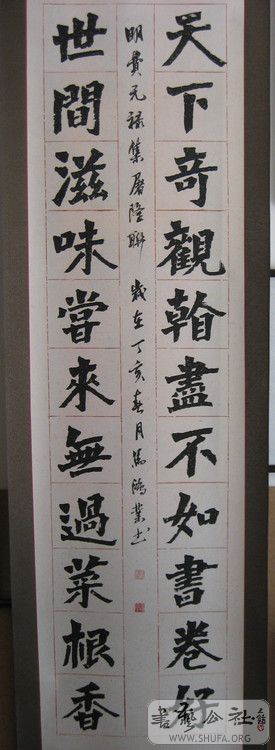 天下奇觀看盡不如書卷好
明費元祿集屠隆聯 歲在丁亥春月鴻業书
世間滋味嘗來無過菜根香
書藝公社
WWW.SHUFA.ORG